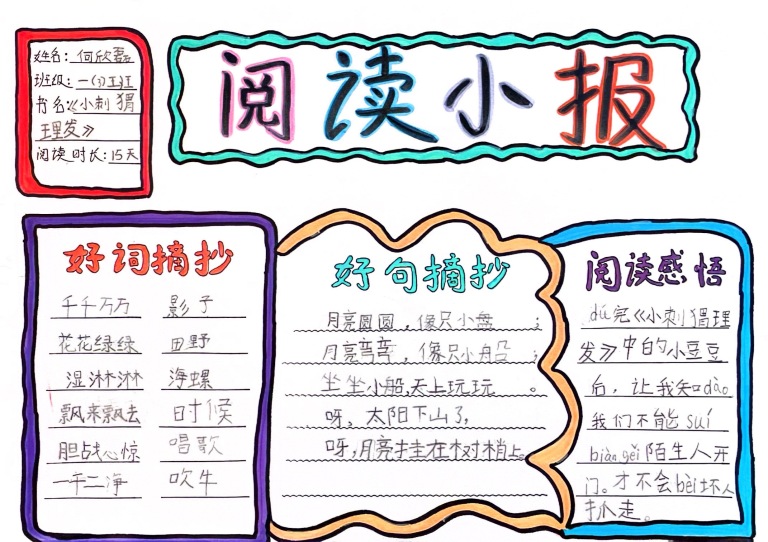 姓名：何欣磊
班级：一(3)班
书名：《小刺猬
理发》
阅读时长：15天
阅读小报
好词摘抄
千千万万 影子
花花绿绿 田野
湿淋淋 海螺
飘来飘去 时候
胆战心惊 唱歌
一干二净 吹牛
好句摘抄
月亮圆圆，像只小盘；
月亮弯弯，像只小船；
坐坐小船，天上玩玩。
呀，太阳下山了，
呀，月亮挂在树梢上。
阅读感悟
dú完《小刺猬理
发》中的小豆豆
后，让我知dào
我们不能suí
biàn gěi陌生人开
门。才不会bèi坏人
抓走。